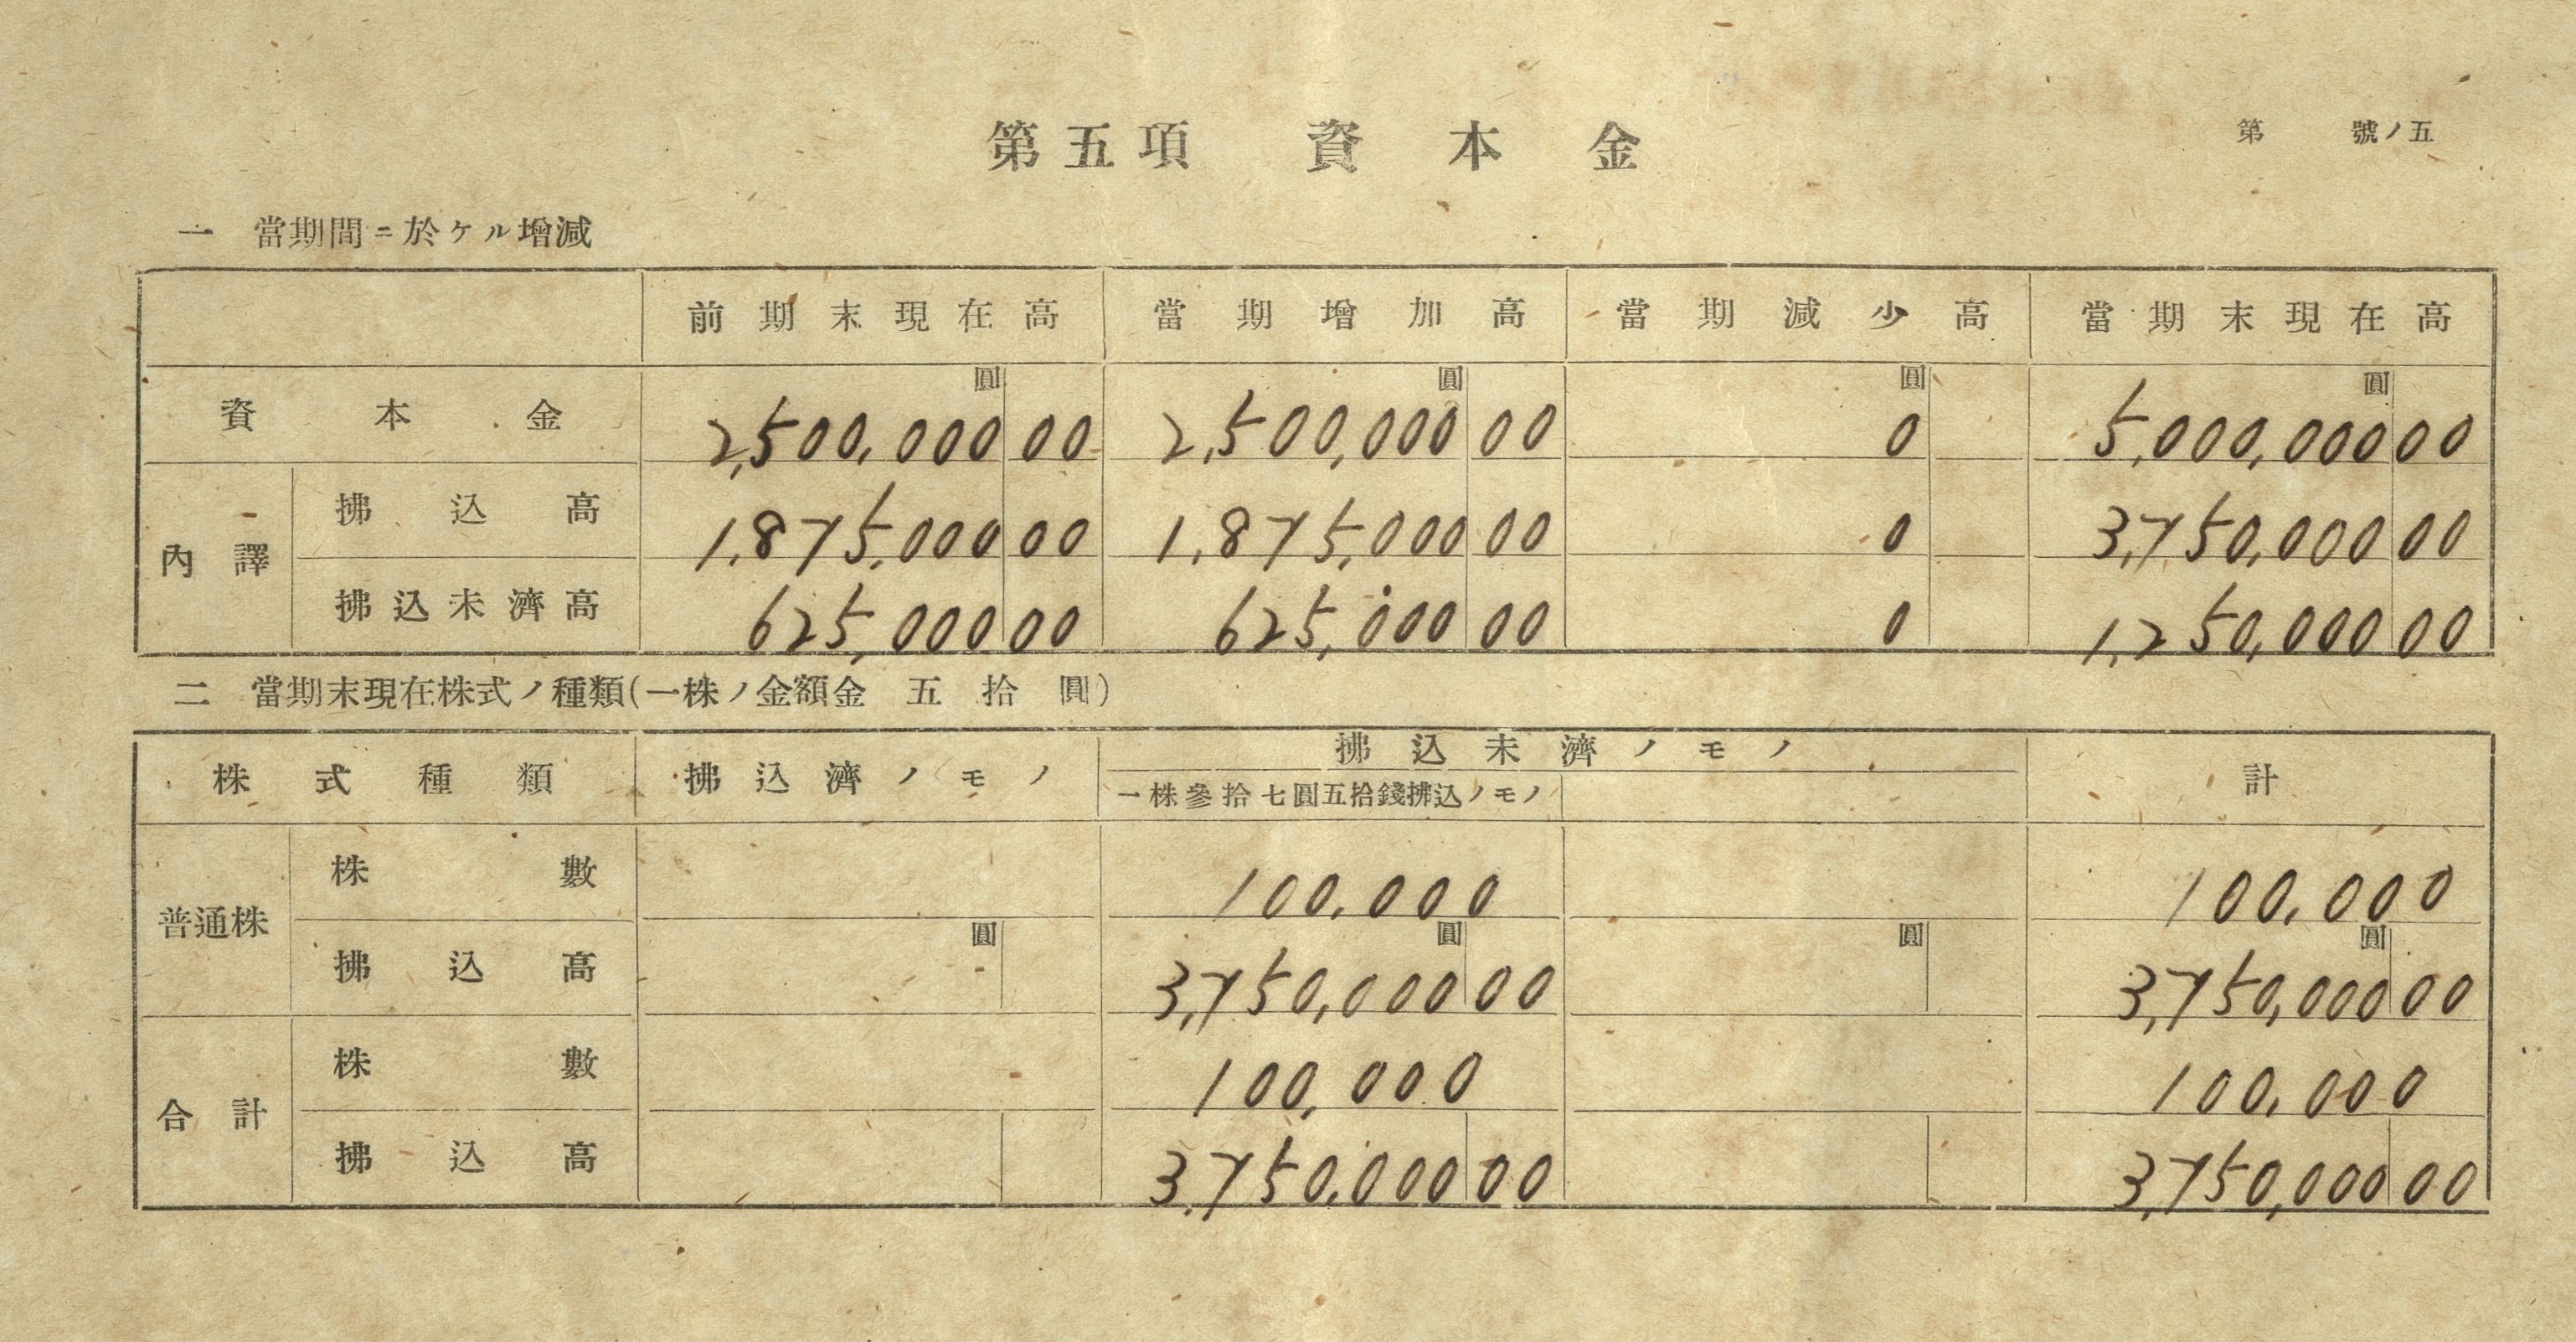 第五項 資本金
第 號ノ五
一 當期間ニ於ケル增減
前期末現在高 當期增加高 當期減少高 當期末現在高
圓 圓 圓 圓
資本金 2,500,000 00 2,500,000 00 0 5,000,000 00
內譯
拂込高 1,875,000 00 1,875,000 00 0 3,750,000 00
拂込未濟高 625,000 00 625,000 00 0 1,250,000 00
二 當期末現在株式ノ種類(一株ノ金額金 五拾圓)
株式種類 拂込濟ノモノ 拂込未濟ノモノ 計
一株參拾七圓五拾錢拂込ノモノ
普通株
株數 100,000 100,000
圓 圓 圓 圓
拂込高 3,750,000 00 3,750,000 00
合計
株數 100,000 100,000
拂込高 3,750,000 00 3,750,000 00